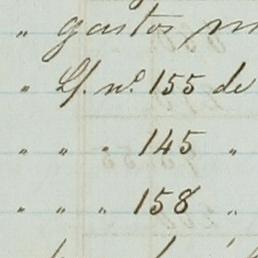 " gastos
" L/. nº 155 de
" " " 145 "
" " " 158 "